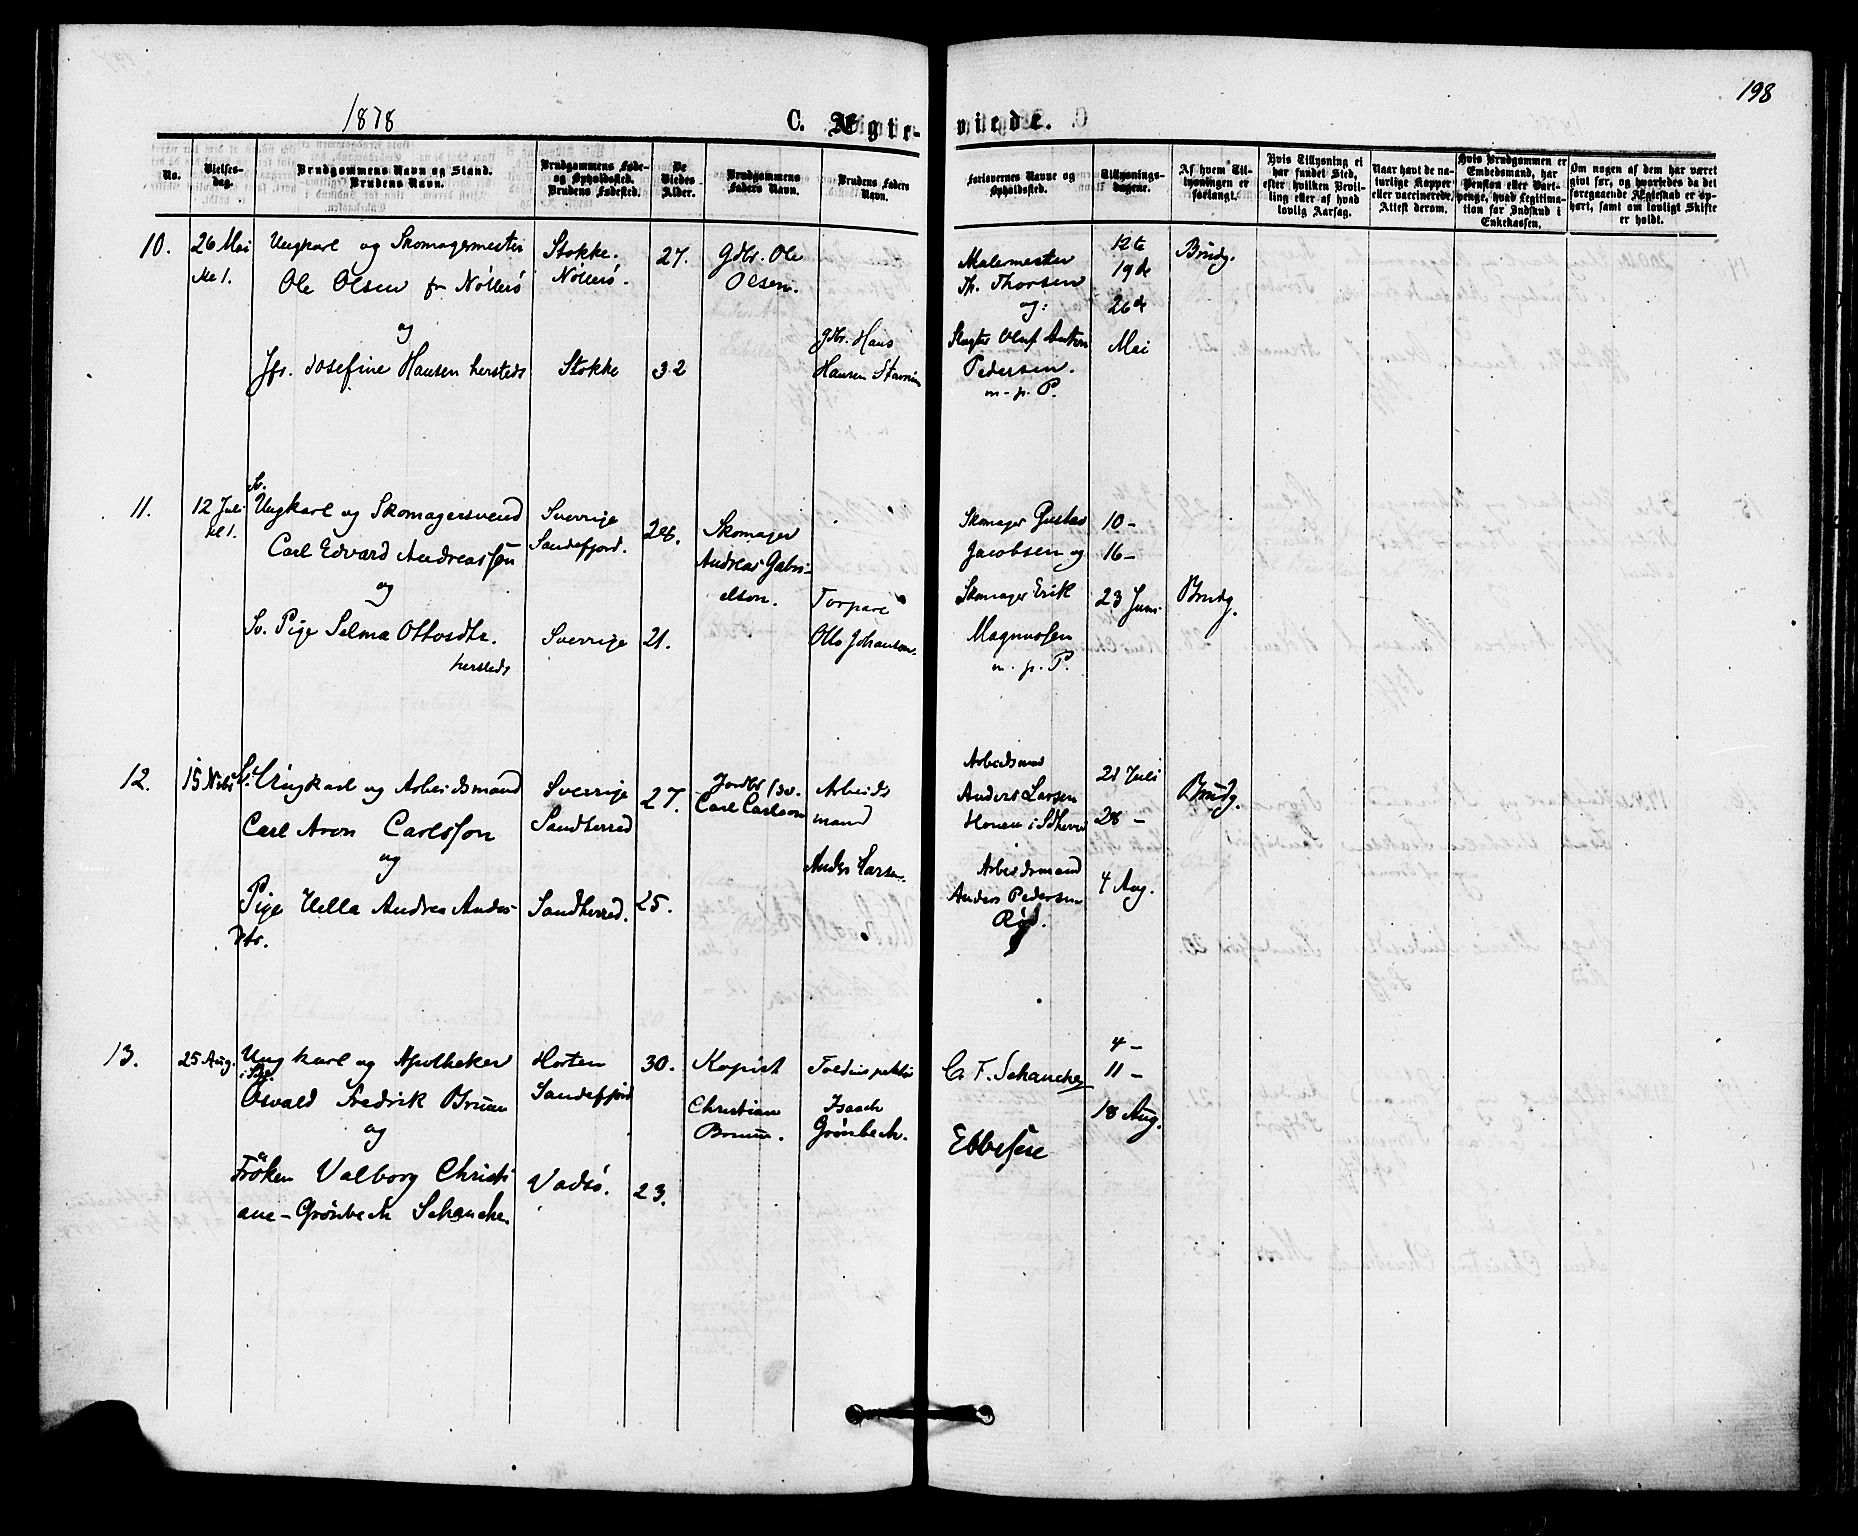 198
1878
C. Ægte-viede.
No.
Vielses-dag.
Brudgommens Navn og Stand.
Brudens Navn.
Brudgommens Føde- og Opholdssted.
Brudens Fødested.
De Viedes Alder.
Brudgommens Faders Navn.
Brudens Faders Navn.
Forlovernes Navne og Opholdssted.
Tillysnings-dagene.
Af hvem Til-lysningen er forlangt.
Hvis Tillysning ei har fundet Sted, efter hvilken Bevil-ling eller af hvad lovlig Aarsag.
Naar havt de na-turlige Kopper eller vaccinerede. Attest derom.
Hvis Brudgommen er Embedsmand, har Pension eller Vart-penge, hvad Legitima-tion for Indskud i Enkekassen.
Om nogen af dem har været givt før, og hvorledes da det foregaaende Ægteskab er op-hørt, samt om lovligt Skifte er holdt.
10.
26 Mai
Kl 1.
Ungkarl og Skomagermester
Ole Olsen fr Nöterö
og
Jfr. Josefine Hansen hersteds
Stokke.
Nöterö.
Stokke
27.
32
Gdbr. Ole
Olsen.
Gdbr. Hans
Hansen
Malermester
Th. Thorsen
og:
Oluf Anton
Pedersen.
m. p. P.
12te
19de
26de
Mai
Brudg.
11.
12 Juli
kl 1.
Sv.
Ungkarl og Skomagersvend
Carl Edvard Andreassen
og
Sv. Pige Selma Ottosdtr.
hersteds
Sverrige
Sandefjord.
Sverrige
28.
21.
Skomager
Andreas Gabri-
elson.
Torpare
Otto Johanson.
Skomager Gustav
Jacobsen og
Skomager Erik
Magnussen
m. p. P.
10 -
16 -
23 Juni
Brudg.
12.
Sv. Ungkarl og Arbeidsmand
Carl Aron Carlsson
og
Pige Hella Andrea Anders-
dtr.
Sverrige
Sandherred
Sandherred.
27.
25.
Carl Carlson
Arbeids
mand
Anders Larsen.
Arbeidsmd
Anders Larsen
Arbeidsmand
Anders Pedersen
Rød.
21 Juli
28 -
4 Aug.
Brudg.
13.
25 Aug.
Ungkarl og Apotheker
Osvald Fredrik Bruun
og
Fröken Valborg Christi
ane - Grönbech Schanche
Horten
Sandefjord
Vadsö.
30.
23.
Kopist
Christian
Bruun.
Toldinspektör
Isaach
Grönbech.
C. F. Schanche
Ebbesen
4 -
11 -
18 Aug.